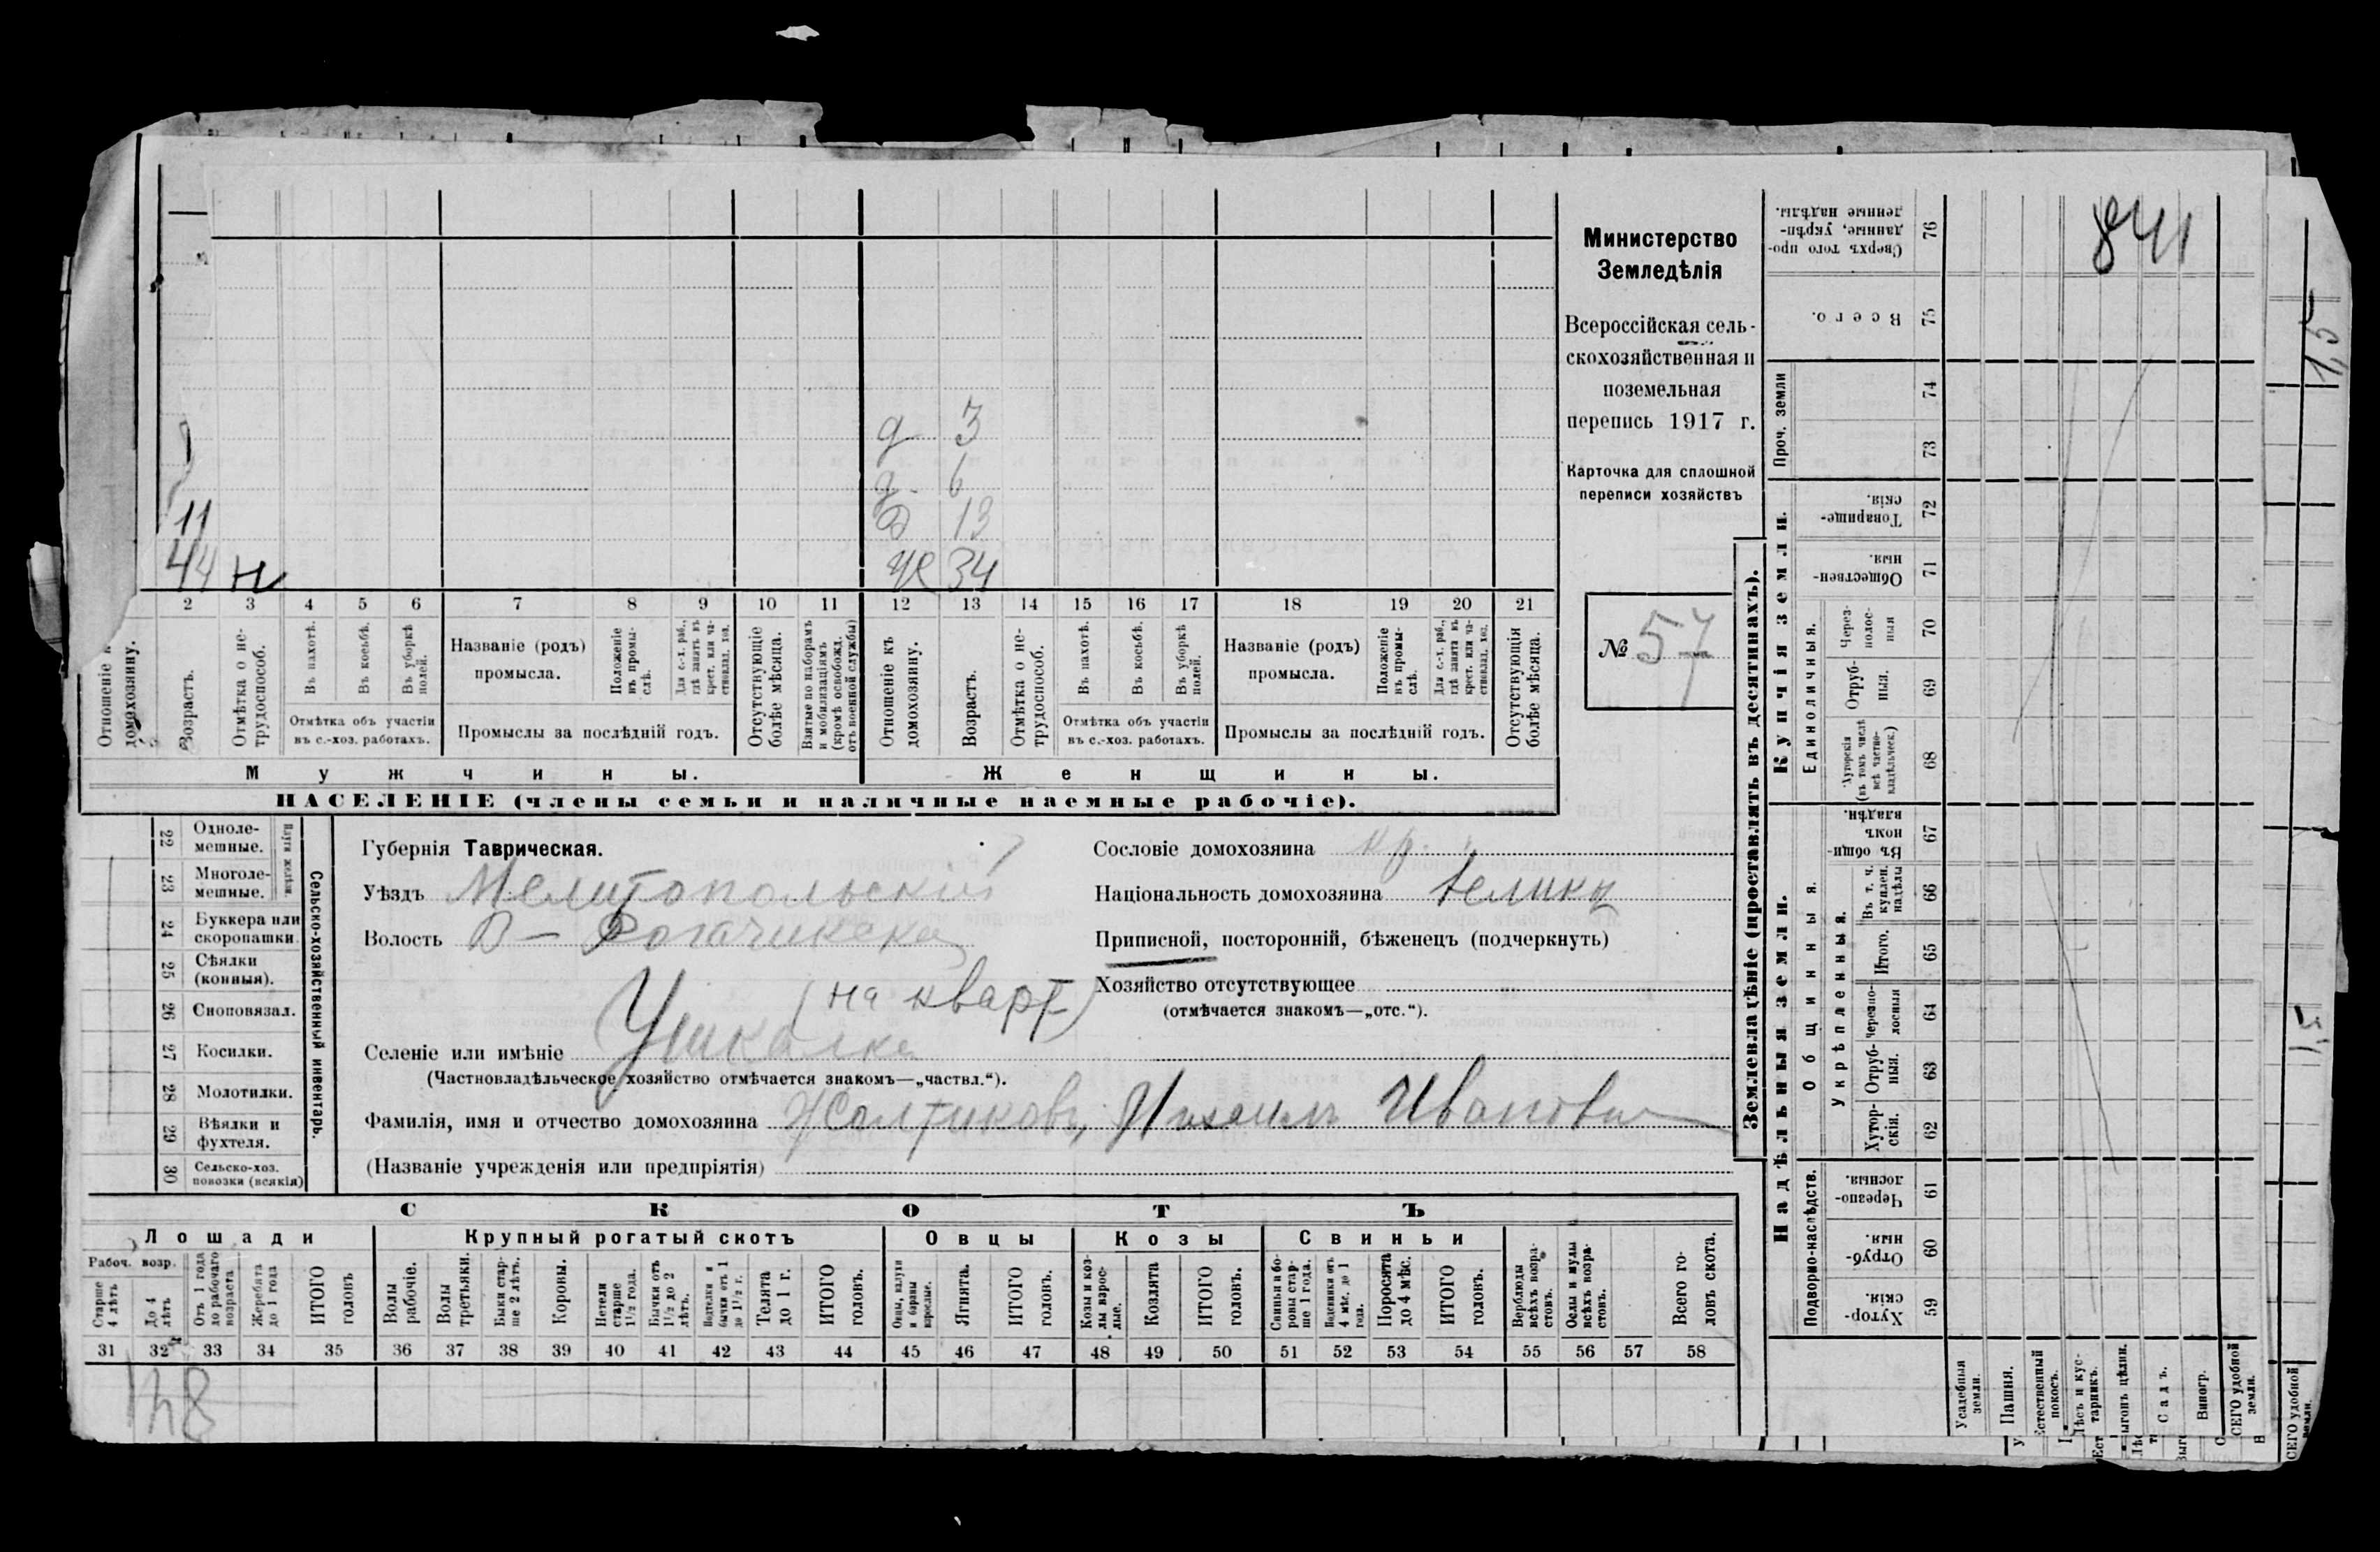 Министерство
Земледѣлія
Всероссійская сель-
скохозяйственная и
поземельная
перепись 1917 г.
Карточка для сплошной
переписи хозяйствъ
№ 57
841
д 3
д. 6
11 д 13
44 н ж 34
2 3 4 5 6 7 8 9 10 11 12 13 14 15 16 17 18 19 20 21
Отношеніе къ домохозяину.
Возрастъ.
Отмѣтка о не-
трудоспособ.
Въ пахотѣ.
Въ косьбѣ.
Въ уборкѣ
полей.
Отмѣтка объ участіи
въ с.-хоз. работахъ.
Названіе (родъ)
промысла.
Положеніе
въ промы-
слѣ.
Для с.-х. раб.,
гдѣ занятъ въ
крест. или ча-
стновлад. хоз.
Промыслы за послѣдній годъ.
Отсутствующіе
болѣе мѣсяца.
Взятые по наборамъ
и мобилизаціямъ
(кромѣ освобожд.
отъ военной службы)
Отношеніе къ
домохозяину.
Возрастъ.
Отмѣтка о не-
трудоспособ.
Въ пахотѣ.
Въ косьбѣ.
Въ уборкѣ
полей.
Отмѣтка объ участіи
въ с.-хоз. работахъ.
Названіе (родъ)
промысла.
Положеніе
въ промы-
слѣ.
Для с.-х. раб.,
гдѣ занята въ
крест. или ча-
стновлад. хоз.
Промыслы за послѣдній годъ.
Отсутствующія
болѣе мѣсяца.
Мужчины.
Женщины.
НАСЕЛЕНІЕ (члены семьи и наличные наемные рабочіе).
22 Одноле-
мешные.
23 Многоле-
мешные.
Плуги желѣзн.
24 Буккера или
скоропашки.
25 Сѣялки
(конныя).
26 Сноповязал.
27 Косилки.
28 Молотилки.
29 Вѣялки и
фухтеля.
30 Сельско-хоз.
повозки (всякія)
Сельско-хозяйственный инвентарь.
Губернія Таврическая.
Уѣздъ Мелитопольскій
Волость В-Рогачикская
(на кварт)
Селеніе или имѣніе Ушкалка
(Частновладѣльческое хозяйство отмѣчается знакомъ—„частвл.“).
Фамилія, имя и отчество домохозяина Жолтиковъ, Михаилъ Иванович
(Названіе учрежденія или предпріятія)
Сословіе домохозяина кр.
Національность домохозяина Велик
Приписной, посторонній, бѣженецъ (подчеркнуть)
Хозяйство отсутствующее
(отмѣчается знакомъ—„отс.“).
СКОТЪ
Лошади Крупный рогатый скотъ Овцы Козы Свиньи
Рабоч. возр.
Старше
4 лѣтъ
До 4
лѣтъ
Отъ 1 года
до рабочаго
возраста
Жеребята
до 1 года
ИТОГО
головъ
Волы
рабочіе.
Волы
третьяки.
Быки стар-
ше 2 лѣтъ.
Коровы.
Нетели
старше
1½ года.
Бычки отъ
1½ до 2
лѣтъ.
Подтелки и
бычки отъ 1
до 1½ г.
Телята
до 1 г.
ИТОГО
головъ.
Овцы, валухи
и бараны
взрослые.
Ягнята.
ИТОГО
головъ.
Козы и коз-
лы взрос-
лые.
Козлята
ИТОГО
головъ.
Свиньи и бо-
ровы стар-
ше 1 года.
Подсвинки отъ
4 мѣс. до 1
года.
Поросята
до 4 мѣс.
ИТОГО
головъ.
Верблюды
всѣхъ возра-
стовъ.
Ослы и мулы
всѣхъ возра-
стовъ.
Всего го-
ловъ скота.
31 32 33 34 35 36 37 38 39 40 41 42 43 44 45 46 47 48 49 50 51 52 53 54 55 56 57 58
Землевладѣніе (проставлять въ десятинахъ).
Купчія земли.
Надѣльныя земли.
Сверхъ того про-
данные, укрѣп-
ленные надѣлы. 76
Всего. 75
Проч. земли 74 73
Товарище-
скія. 72
Обществен-
ныя. 71
Единоличныя.
Через-
полос-
ныя 70
Отруб-
ныя. 69
Хуторскія
(въ томъ числѣ
всѣ частно-
владѣльческ.) 68
Общинныя.
Въ общин-
номъ
владѣн. 67
Укрѣпленныя.
Въ т. ч.
куплен.
надѣлы 66
Итого. 65
Черезпо-
лосныя 64
Отруб-
ныя. 63
Хутор-
скія. 62
Подворно-наслѣдств.
Черезпо-
лосныя. 61
Отруб-
ныя. 60
Хутор-
скія. 59
Усадебныя
земли.
Пашня.
Естественный
покосъ.
Лѣсъ и кус-
тарникъ.
Выгонъ цѣлин.
Садъ.
Виногр.
ВСЕГО удобной
земли.
1,5